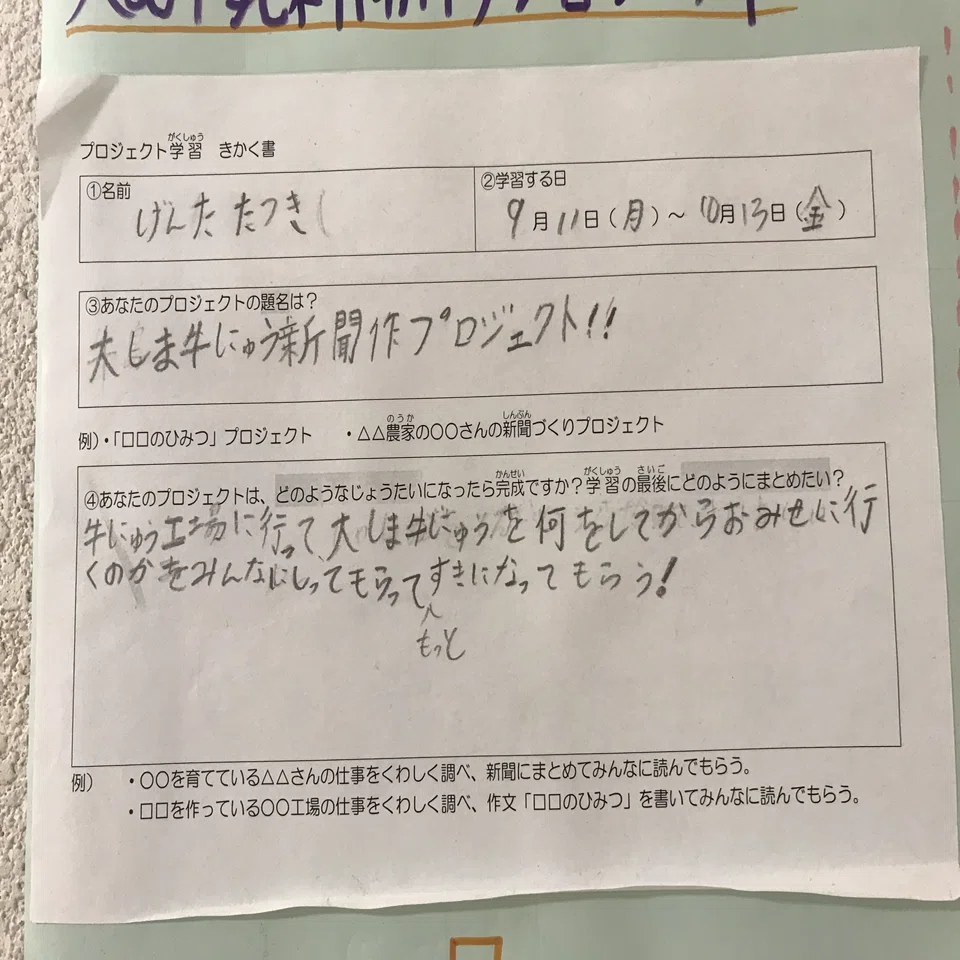 プロジェクト学習 きかく書
がくしゅう
①名前
げんた たつき
②学習する日
9月11日(月)～10月13日(金)
③あなたのプロジェクトの題名は?
大しま牛にゅう新聞作プロジェクト!!
例)・「口口のひみつ」プロジェクト ・△△農家の〇〇さんの新聞づくりプロジェクト
のうか しんぶん
④あなたのプロジェクトは、どのようなじょうたいになったら完成ですか?学習の最後にどのようにまとめたい?
かんせい がくしゅう さいご
牛にゅう工場に行って大しま牛にゅうを何をしてからおみせに行
くのかをみんなにしってもらってすきになってもらう!
もっと
例) ・〇〇を育てている△△さんの仕事をくわしく調べ、新聞にまとめてみんなに読んでもらう。
・口口を作っている〇〇工場の仕事をくわしく調べ、作文「口口のひみつ」を書いてみんなに読んでもらう。